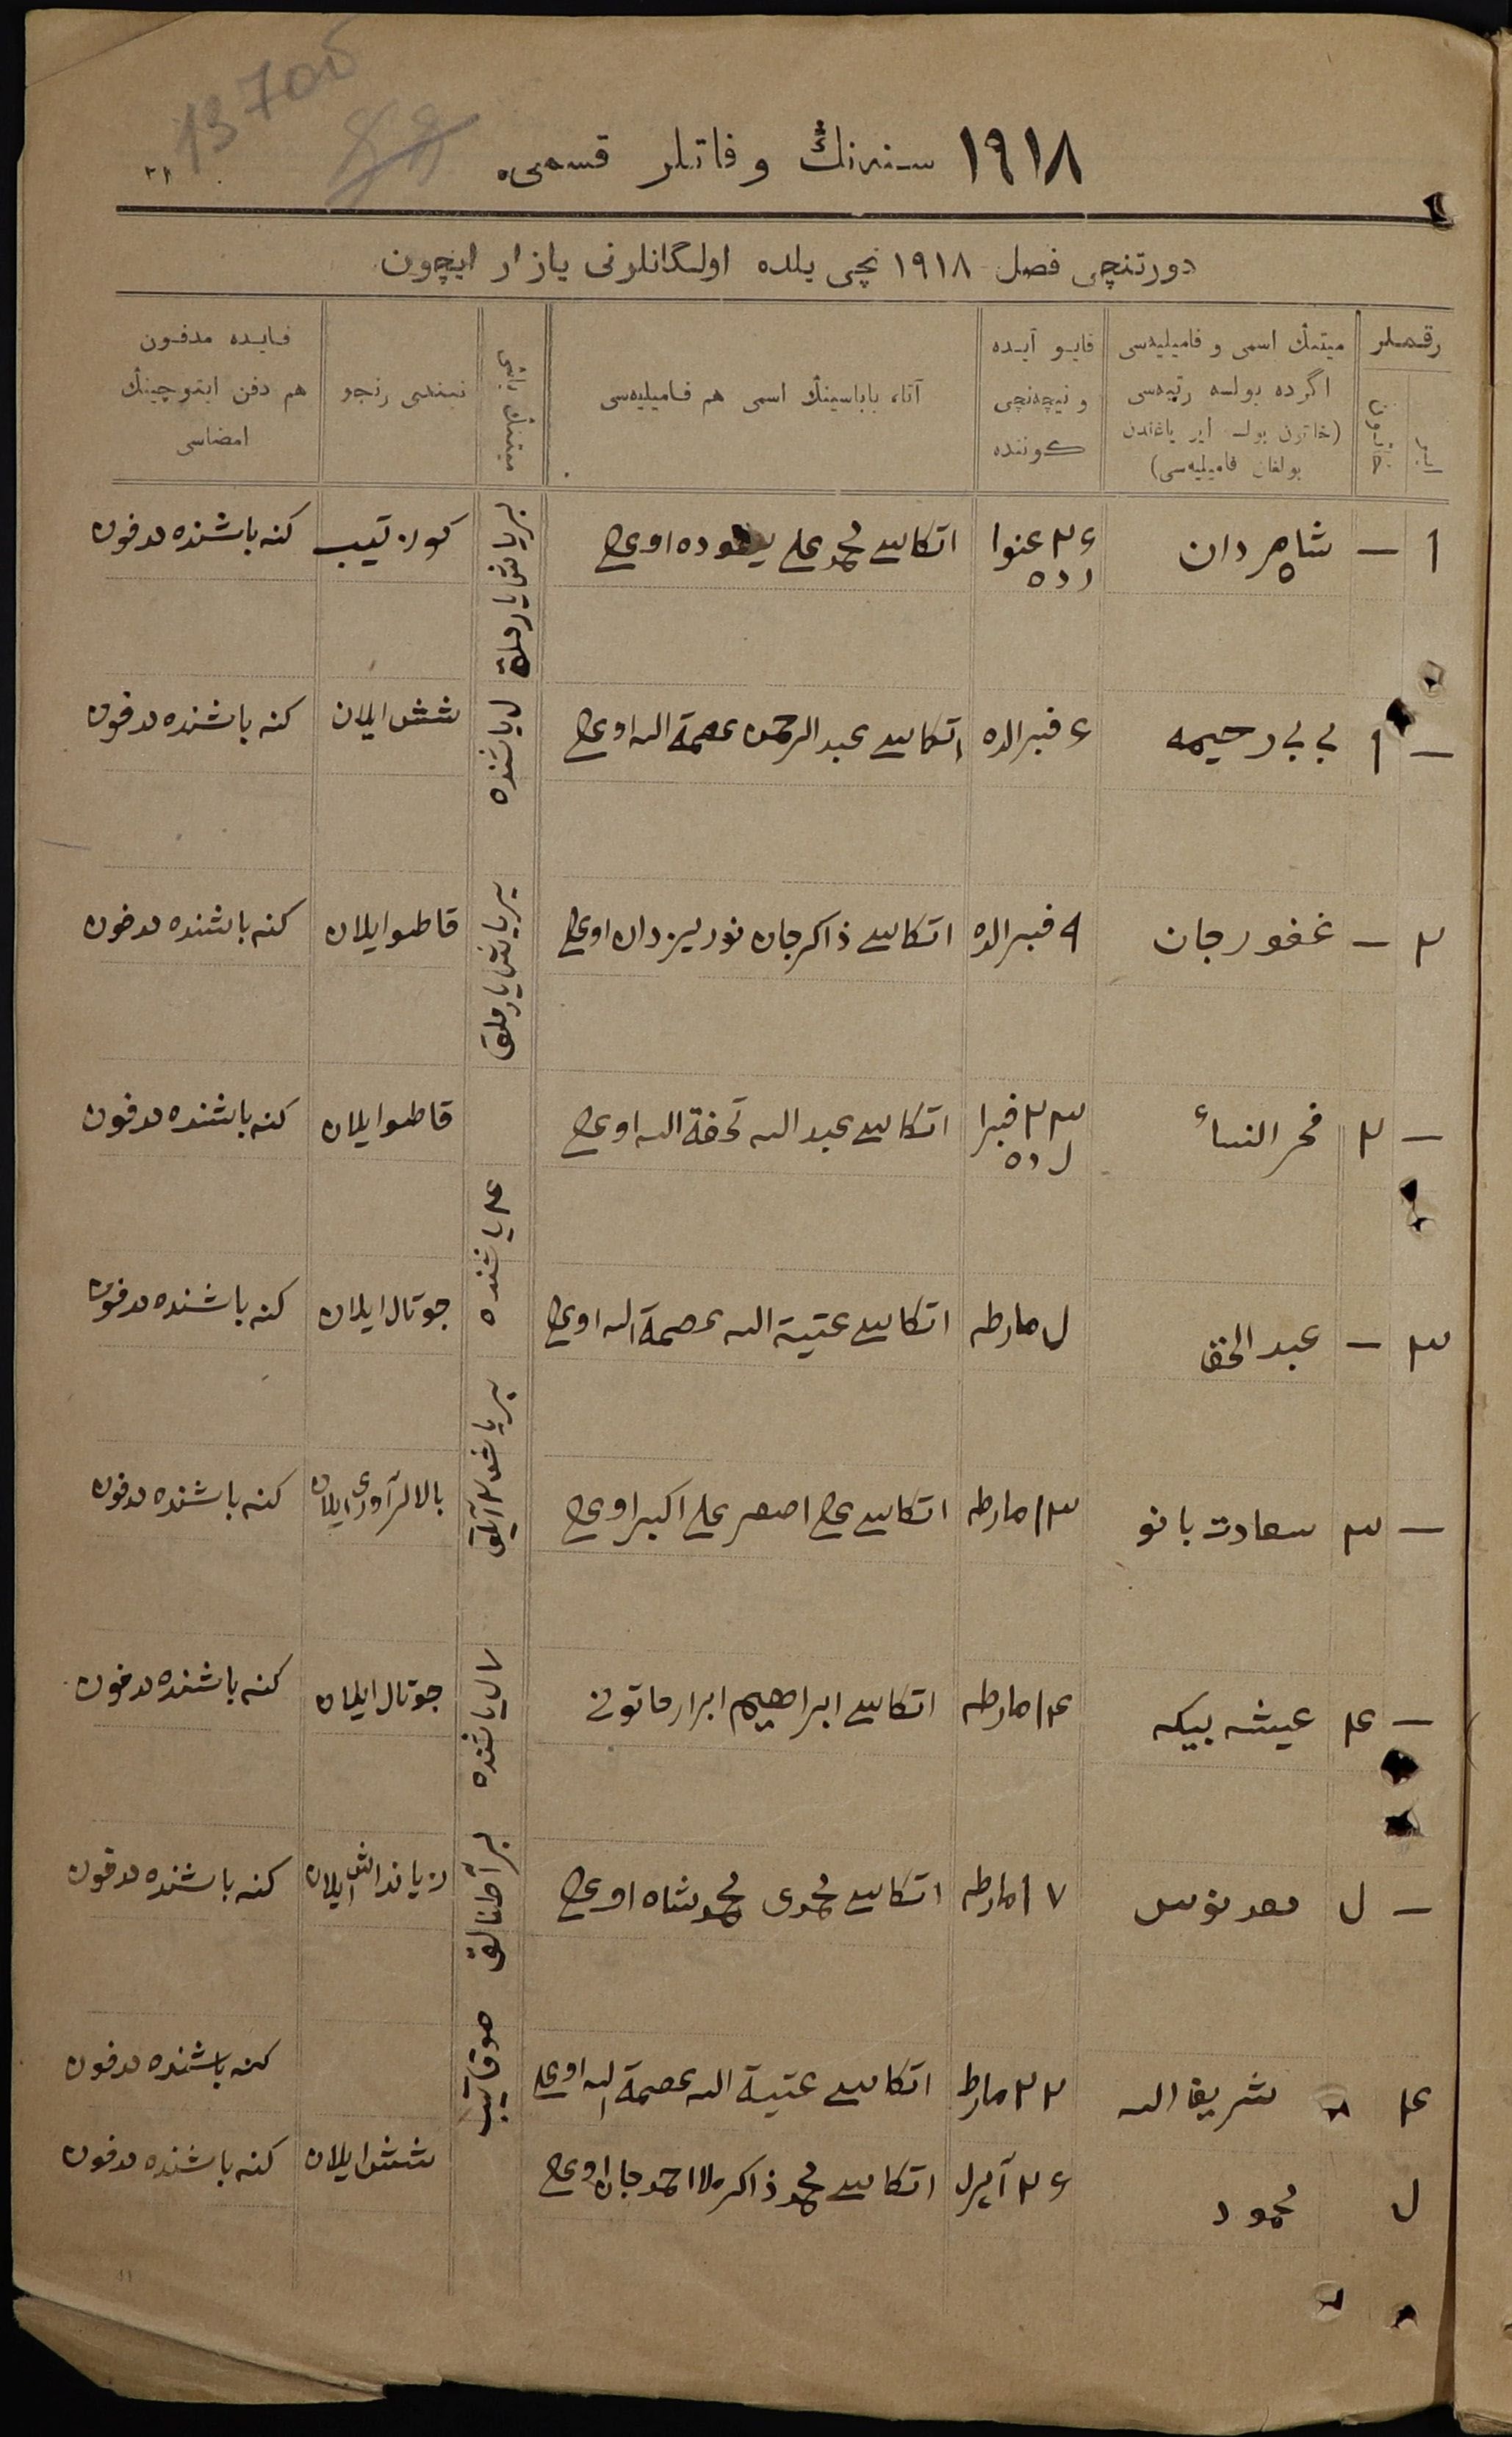 13700
88
١٩١٨ سنه‌نڭ وفاتلر قسمی.
٢١
دورتنچی فصل ١٩١٨ نچی یلده اولگانلرنی یازار ایچون
رقملر
ایر
خاتون
میتنڭ اسمی و فامیلیه‌سی
اگرده بولسه رتبه‌سی
(خاتون بولسه ایر یاغندن
بولغان فامیلیه‌سی)
قایو آیده
و نیچه‌نچی
كوننده
آتا، باباسینڭ اسمی هم فامیلیه‌سی
میتنڭ یاشی
نیندی رنجو
قایده مدفون
هم دفن ایتوچینڭ
امضاسی
١ — شاهمردان
اتكاسی محمد علی
كنه باشنده مدفون
— ١ بی بی رحیمه ٤ فبرالده اتكاسی عبدالرحمن عصمة الله اوغلی ل یاشنده شش ایلان كنه باشنده مدفون
٢ — غفورجان ٩ فبرالده اتكاسی ذاكرجان نوریزدان اوغلی بر یاش یارملق قاطو ایلان كنه باشنده مدفون
— ٢ فخر النساء ٢٣ فبرا
لده اتكاسی عبد الله تحفة الله اوغلی قاطو ایلان كنه باشنده مدفون
٣ — عبد الحق ل مارطه اتكاسی عتیة الله عصمة الله اوغلی ٤ یاشنده جوتال ایلان كنه باشنده مدفون
— ٣ سعادت بانو ١٣ مارطه اتكاسی علی اصغر علی اكبر اوغلی بالالر آوری ایلان كنه باشنده مدفون
— ٤ عیشه بیكه ١٤ مارطه اتكاسی ابراهیم ابرار خاتونی یاشنده جوتال ایلان كنه باشنده مدفون
— ل ١٧ مارطه اتكاسی محمدی محمد شاه اوغلی بر آطنالق ایلان كنه باشنده مدفون
٤ شریف الله ٢٢ مارط اتكاسی عتیة الله عصمة الله اوغلی كنه باشنده مدفون
ل محمود ٢٤ آپرل اتكاسی محمد ذاكر ملا احمد جان اوغلی شش ایلان كنه باشنده مدفون